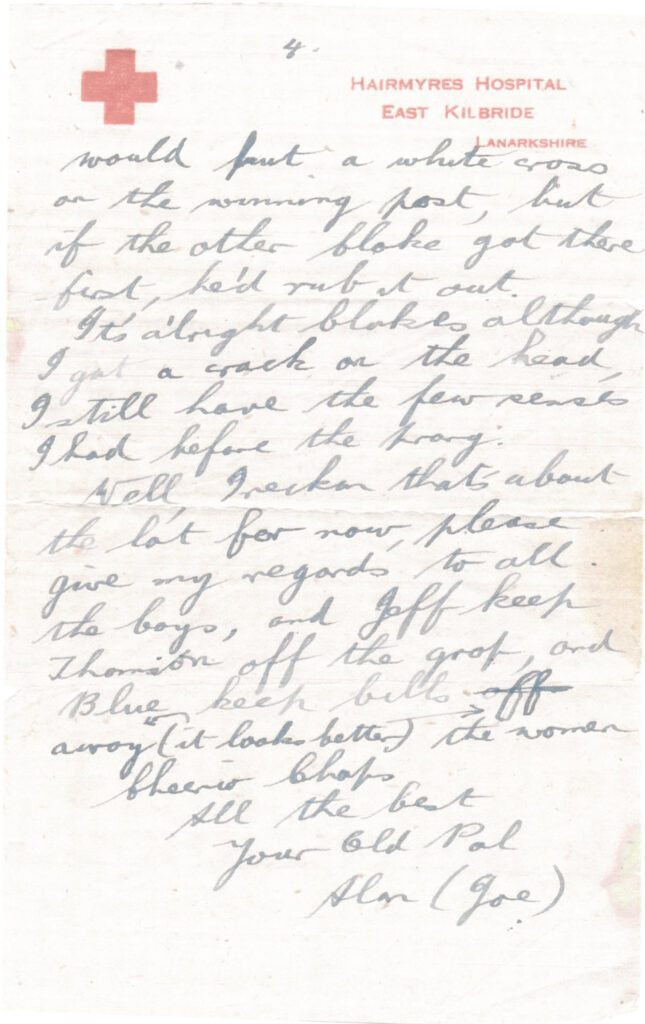 4.
HAIRMYRES HOSPITAL
EAST KILBRIDE
LANARKSHIRE
would put a white cross
on the winning post, but
if the other bloke got there
first, he'd rub it out.
It's alright blokes although
I got a crack on the head,
I still have the few senses
I had before the prang.
Well, I reckon that's about
the lot for now, please
give my regards to all
the boys, and Jeff keep
Thomson off the grog, and
Blue, keep bills off
away (it looks better) the women
Cheerio Chaps
All the best
Your Old Pal
Alan (Joe)